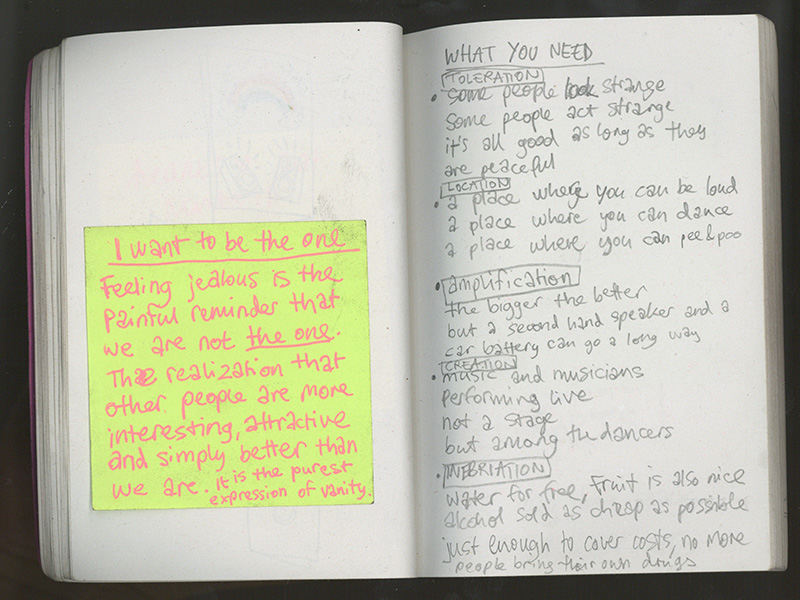 I want to be the one
Feeling jealous is the
Painful reminder that
we are not the one.
The realization that
other people are more
interesting, attractive
and simply better than
we are. it is the purest
expression of vanity.
WHAT YOU NEED
TOLERATION
• some people look strange
some people act strange
it's all good as long as they
are peaceful
LOCATION
• a place where you can be loud
a place where you can dance
a place where you can pee & poo
• amplification
the bigger the better
but a second hand speaker and a
car battery can go a long way
CREATION
• music and musicians
performing live
not a stage
but among the dancers
• INEBRIATION
water for free, fruit is also nice
alcohol sold as cheap as possible
just enough to cover costs, no more
people bring their own drugs